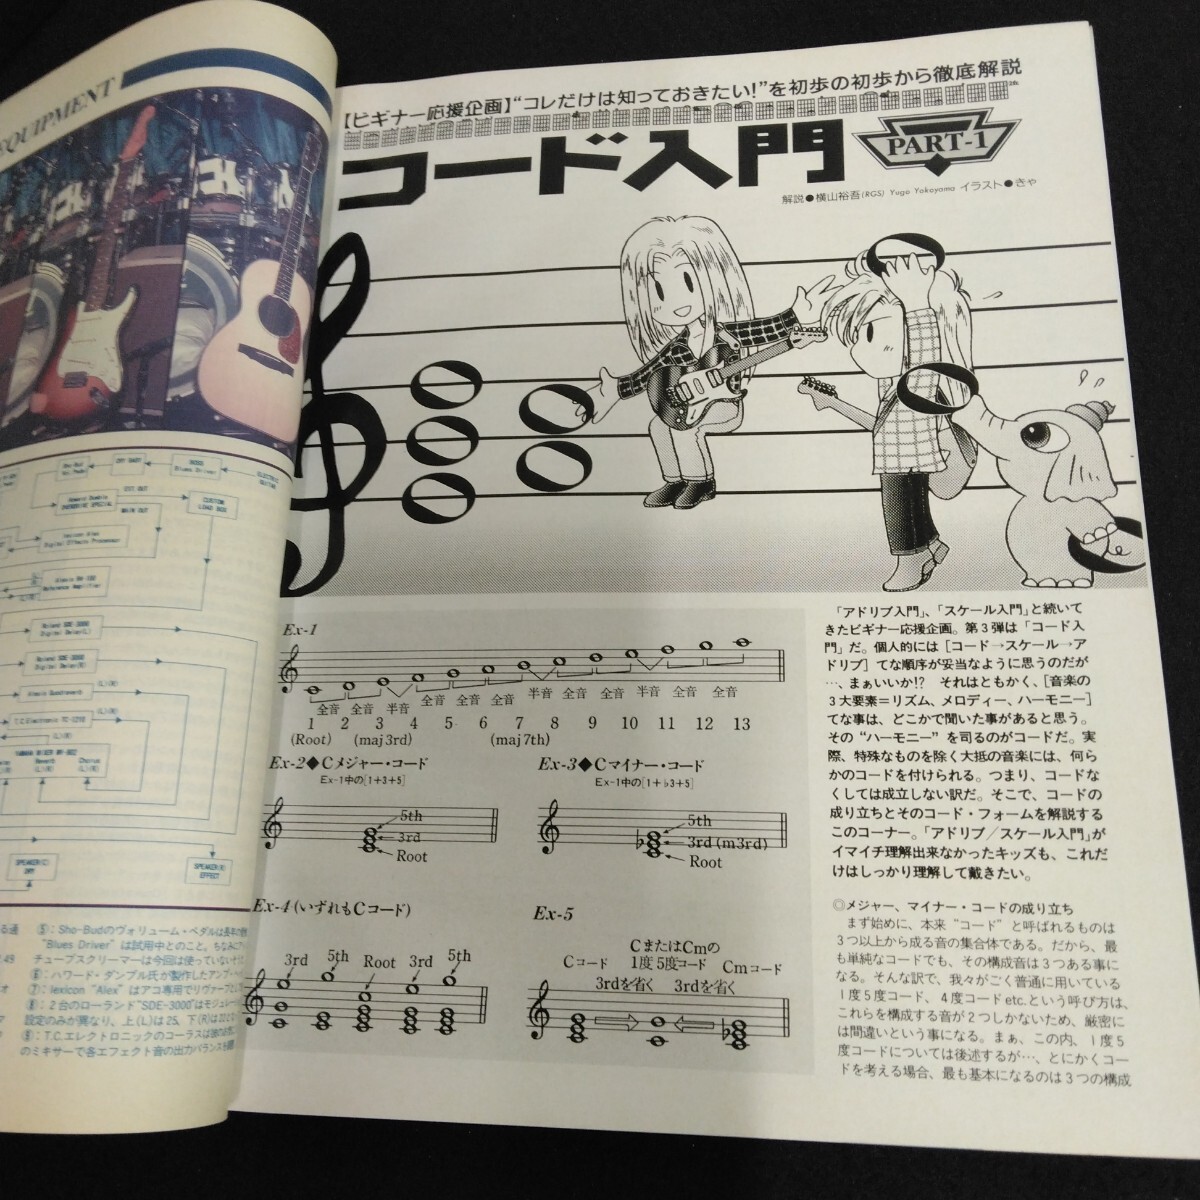 EQUIPMENT
ELECTRIC GUITAR
BOSS
Blues Driver
CRY BABY
EXT OUT
OVERDRIVE SPECIAL
MAIN OUT
CUSTOM
LOAD BOX
Digital Effects Processor
Reference Amplifier
Roland SDE-3000
Digital Delay(L)
Roland SDE-3000
Digital Delay(R)
Alesis Quadraverb
(L)(R)
(L)(R)
Reverb
(L)(R)
Chorus
(L)(R)
SPEAKER(C)
DRY
SPEAKER(R)
EFFECT
⑤:Sho-Budのヴォリューム・ペダルは長年の
“Blues Driver”は試用中とのこと。ちなみに
チューブスクリーマーは今回は使っていない
⑥:ハワード・ダンブル氏が製作したアンプ・
⑦:lexicon “Alex”はアコ専用でリヴァーブ
⑧:2台のローランド“SDE-3000”はモジュレー
設定のみが異なり、上(L)は25、下(R)は
⑨:T.C.エレクトロニックのコーラスは
のミキサーで各エフェクト音の出力バランスを
【ビギナー応援企画】“コレだけは知っておきたい!”を初歩の初歩から徹底解説
コード入門
PART-1
解説●横山裕吾(RGS) Yugo Yokoyama イラスト●きゃ
Ex-1
全音 全音 半音 全音 全音 全音 半音 全音 全音 半音 全音 全音
1 2 3 4 5 6 7 8 9 10 11 12 13
(Root) (maj3rd) (maj7th)
Ex-2◆Cメジャー・コード
Ex-1中の[1+3+5]
5th
3rd
Root
Ex-3◆Cマイナー・コード
Ex-1中の[1+♭3+5]
5th
3rd(m3rd)
Root
Ex-4(いずれもCコード)
3rd 5th Root 3rd 5th
Ex-5
CまたはCmの
Cコード 1度5度コード Cmコード
3rdを省く 3rdを省く
「アドリブ入門」、「スケール入門」と続いて
きたビギナー応援企画。第3弾は「コード入
門」だ。個人的には[コード→スケール→ア
ドリブ]てな順序が妥当なように思うのだが
…、まぁいいか!? それはともかく、[音楽の
3大要素=リズム、メロディー、ハーモニー]
てな事は、どこかで聞いた事があると思う。
その“ハーモニー”を司るのがコードだ。実
際、特殊なものを除く大抵の音楽には、何ら
かのコードを付けられる。つまり、コードな
くしては成立しない訳だ。そこで、コードの
成り立ちとそのコード・フォームを解説する
このコーナー。「アドリブ/スケール入門」が
イマイチ理解出来なかったキッズも、これだ
けはしっかり理解して戴きたい。
◎メジャー、マイナー・コードの成り立ち
まず始めに、本来“コード”と呼ばれるものは
3つ以上から成る音の集合体である。だから、最
も単純なコードでも、その構成音は3つある事に
なる。そんな訳で、我々がごく普通に用いている
1度5度コード、4度コードetc.という呼び方は、
これらを構成する音が2つしかないため、厳密に
は間違いという事になる。まぁ、この内、1度5
度コードについては後述するが…、とにかくコー
ドを考える場合、最も基本になるのは3つの構成